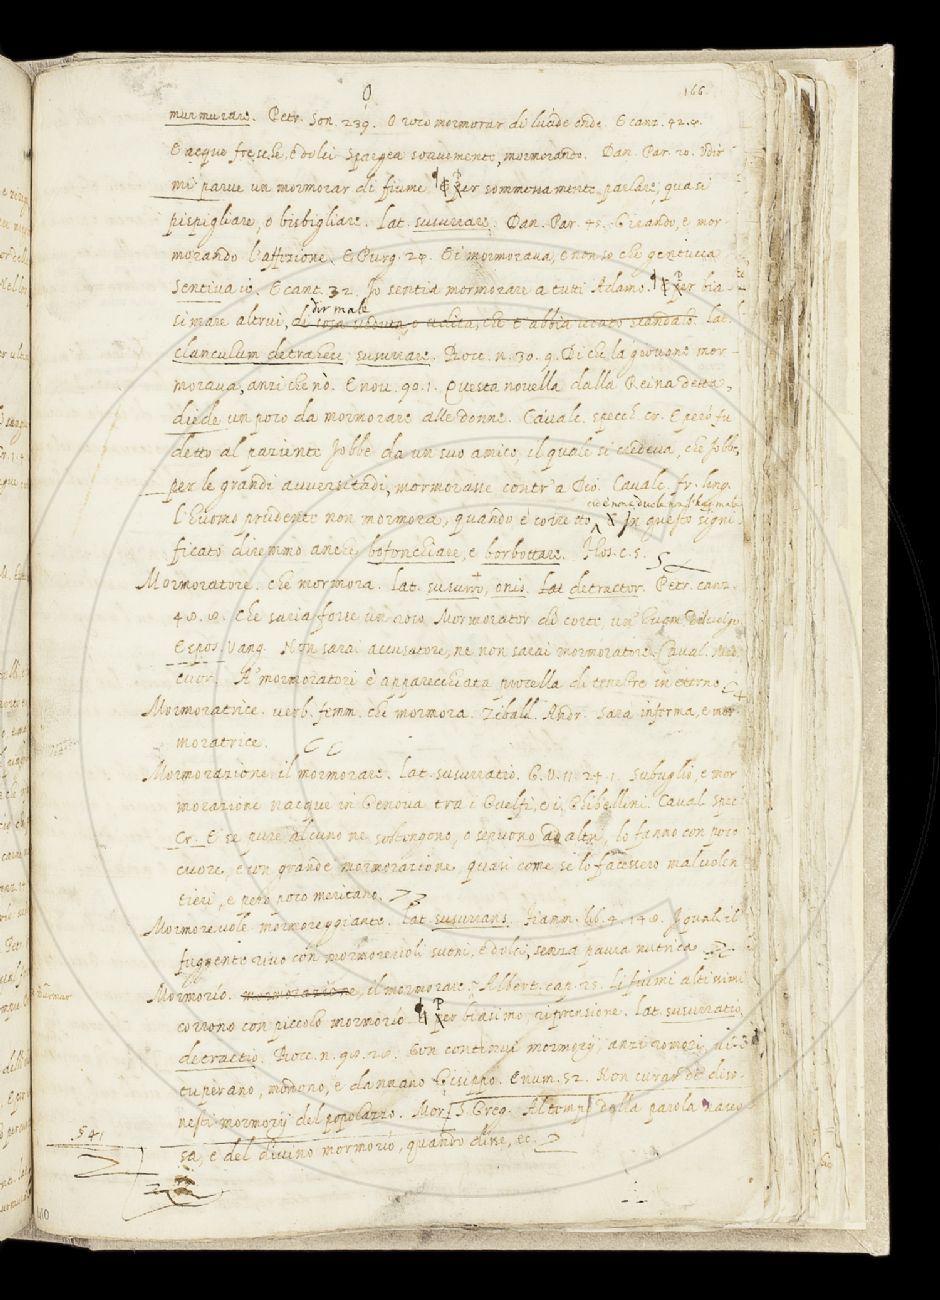 O
166
murmurare. Petr. Son. 239. O roco mormorar di lucide onde. E canz. 42. 4.
E acque fresche, e dolci Spargea soavemente, mormorando. Dan. Par. 20. Udir
mi parve un mormorar di fiume ¶ Per sommessamente parlare, quasi
pispigliare, o bisbigliare. Lat. susurrare. Dan. Par. 45. Girando, e mor-
morando l'affizione. E Purg. 24. Ei mormorava, e non so che gentucca
Sentiva io. E cant. 32. Io sentia mormorare a tutti Adamo. ¶ Per bia-
dir male
simare altrui, di cosa veduta, o udita, che t'abbia recato scandalo. Lat.
clanculum detrahere susurrare. Bocc. n. 30. 9. Di che la giovane mor-
morava, anzi che nò. E nov. 90. 1. Questa novella dalla Reina detta,
diede un poco da mormorare alle donne. Cavalc. specch. cr. E però fu
detto al paziente Jobbe da un suo amico, il quale si credeva, che Jobbe,
per le grandi avversitadi, mormorasse contr'a Dio. Cavalc. fr. ling.
L'huomo prudente non mormora, quando è corretto In questo signi-
ficato diremmo anche bofonchiare, e borbottare. Flos. c. 5.
Mormoratore. che mormora. Lat. susurro, onis. Lat. detractor. Petr. canz.
48. 8. Che saria forse un roco Mormorator di corti, un huom del vulgo
Espos. Vang. Non sarai accusatore, ne non sarai mormoratore. Caval. Med.
cuor. A' mormoratori è apparecchiata procella di tenebre in eterno.
Mormoratrice. verb. femm. che mormora. Zibald. Andr. Sara inferma, e mor-
moratrice.
Mormorazione il mormorare. Lat. susurratio. G. V. 11. 24. 1. Subuglio, e mor
morazione nacque in Genova tra i Guelfi, e i Ghibellini. Caval. Spec.
Cr. E se pure alcuno ne sostengono, o servono ad altri, lo fanno con poco
cuore, e con grande mormorazione, quasi come se lo facessero malvolen
tieri, e però poco meritano.
Mormorevole mormoreggiante. Lat. susurrans. Fiamm. lib. 4. 148. Iquali il
fuggente rivo con mormorevoli suoni, e dolci, senza paura nutrica
Mormorìo. mormorazione, il mormorare. Albert. cap. 25. Li fiumi altissimi
corrono con piccolo mormorìo ¶ Per biasimo, riprensione. Lat. susurratio,
detractio. Bocc. n. 98. 28. Con continui mormorij, anzi romori, vi-
tuperano, mordono, e dannano Gisippo. E num. 52. Non curar de' diso-
nesti mormorij del popolazzo. Mor. S. Greg. Al tempo della parola nasco
sa, e del divino mormorìo, quando dire, ec.
541
410